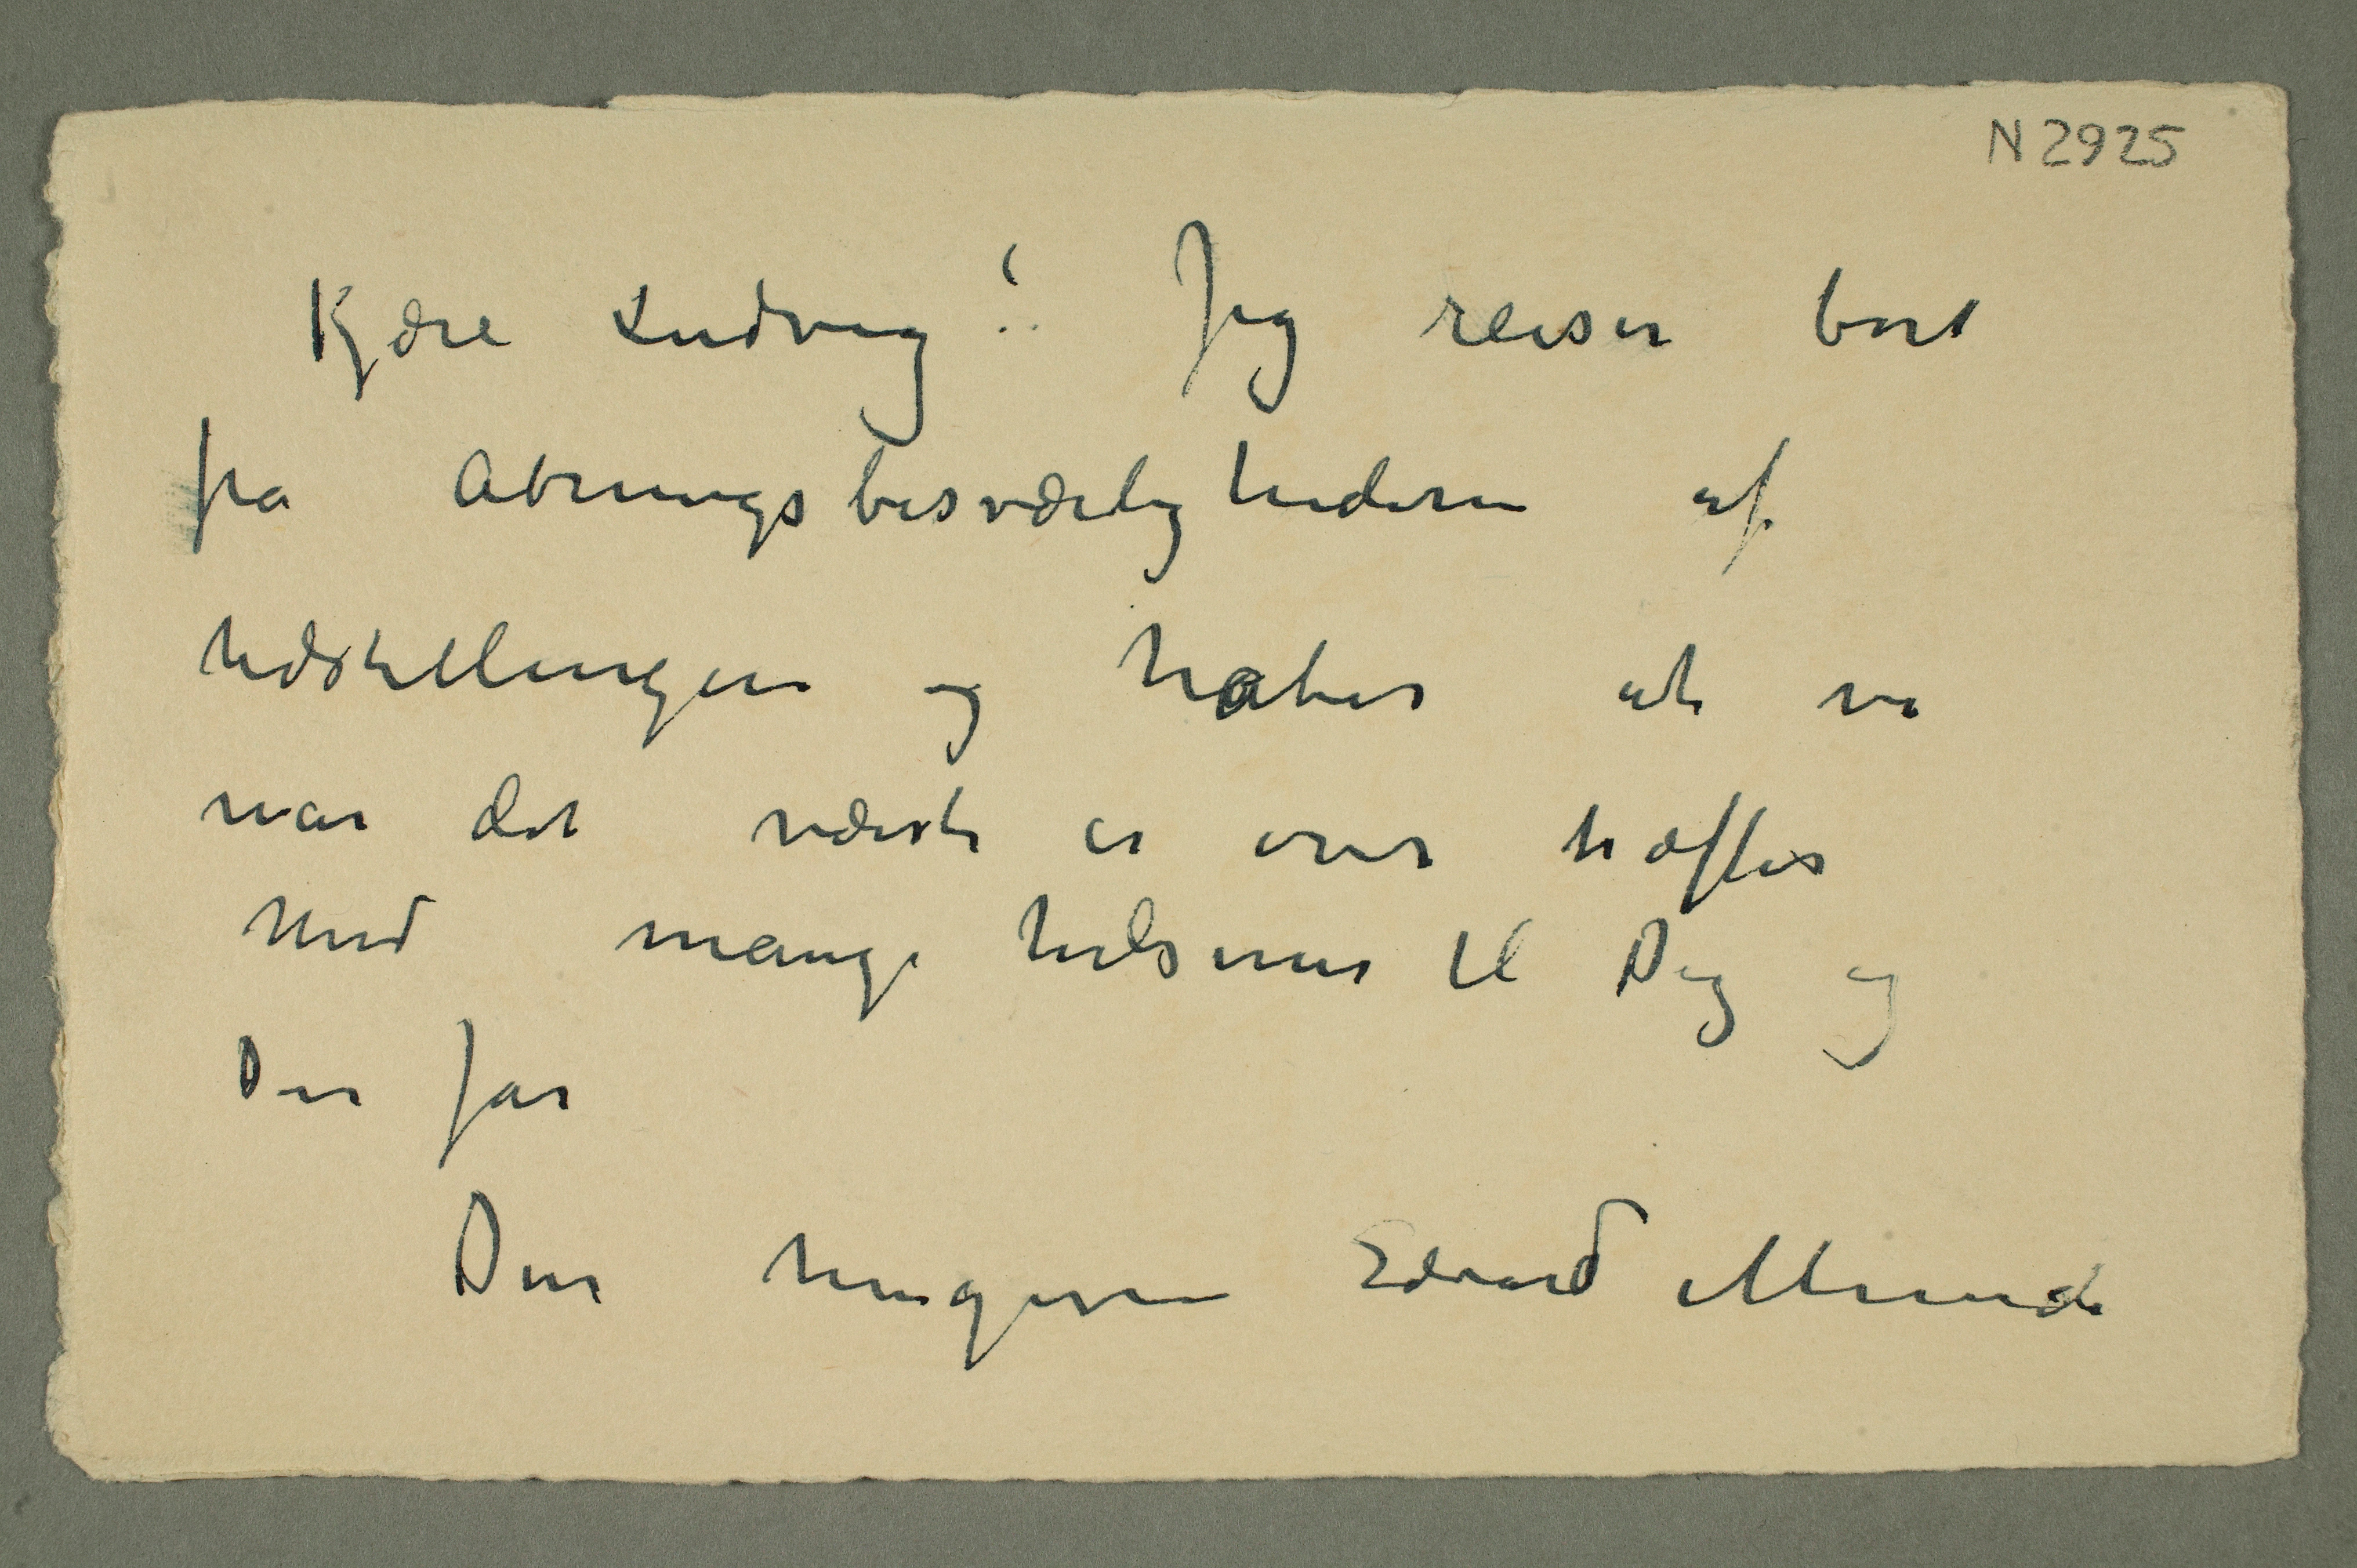 N 2925
Kjære Ludvig! Jeg reiser bort
fra Abningsbesværlighederne af
Udstillingen og haber at vi
nar det værste er over træffes
Med mange hilsener til Dig og
Din far
Din hengivne Edvard Munch